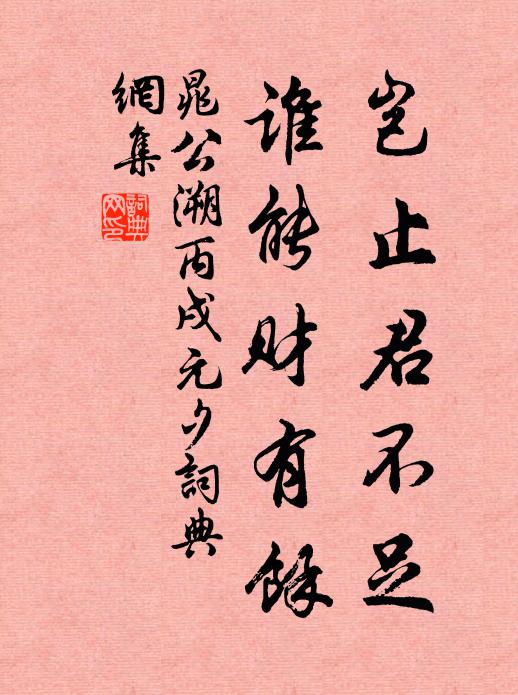 岂止君不足
谁能财有馀
晁公溯丙戌元夕詞典
網集
詞典
网印